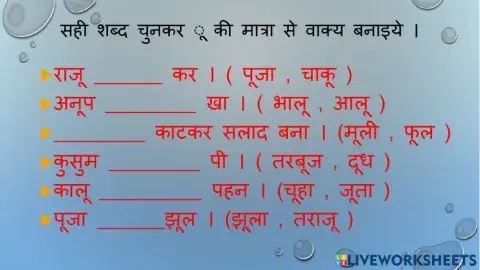 सही शब्द चुनकर ू की मात्रा से वाक्य बनाइये ।
राजू ______ कर । ( पूजा , चाकू )
अनूप ________ खा । ( भालू , आलू )
________ काटकर सलाद बना । (मूली , फूल )
कुसुम ________ पी । ( तरबूज , दूध )
कालू _________ पहन । (चूहा , जूता )
पूजा ______झूल । (झूला , तराजू )
LIVEWORKSHEETS